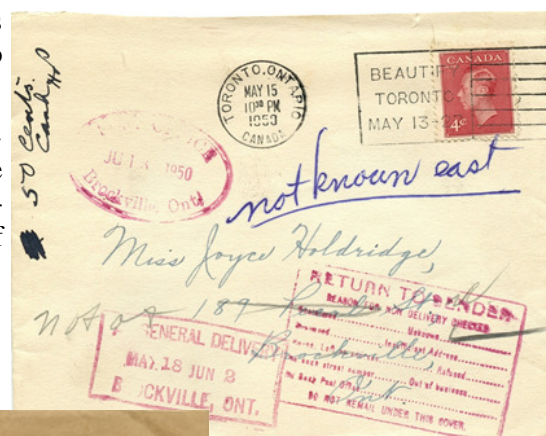 50 cents.
Cash
TORONTO, ONTARIO
MAY 15
10 30 PM
1950
CANADA
BEAUTIFY
TORONTO
MAY 13-2
CANADA
4c
1950
Brockville, Ont.
not known east
Miss Joyce Holdridge,
not at 189
Brockville,
Ont.
GENERAL DELIVERY
MAY 18 JUN 2
BROCKVILLE, ONT.
RETURN TO SENDER
REASON FOR NON DELIVERY CHECKED
Unknown
Address
Refused
street number
Out of business
DO NOT REMAIL UNDER THIS COVER.